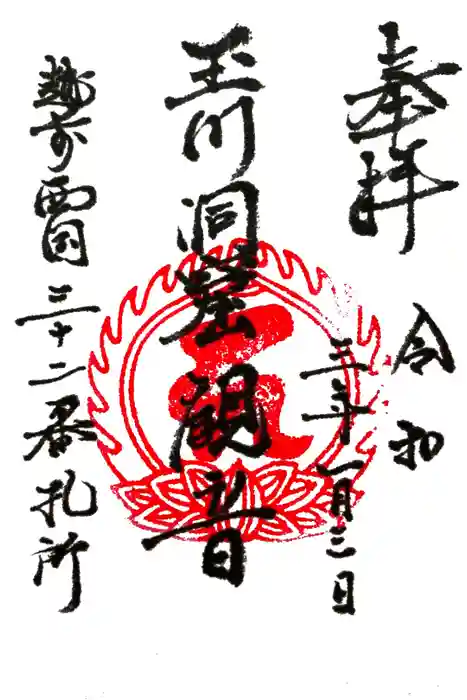 奉拝
令和三年一月三日
玉川洞窟観音
越前西国三十二番札所